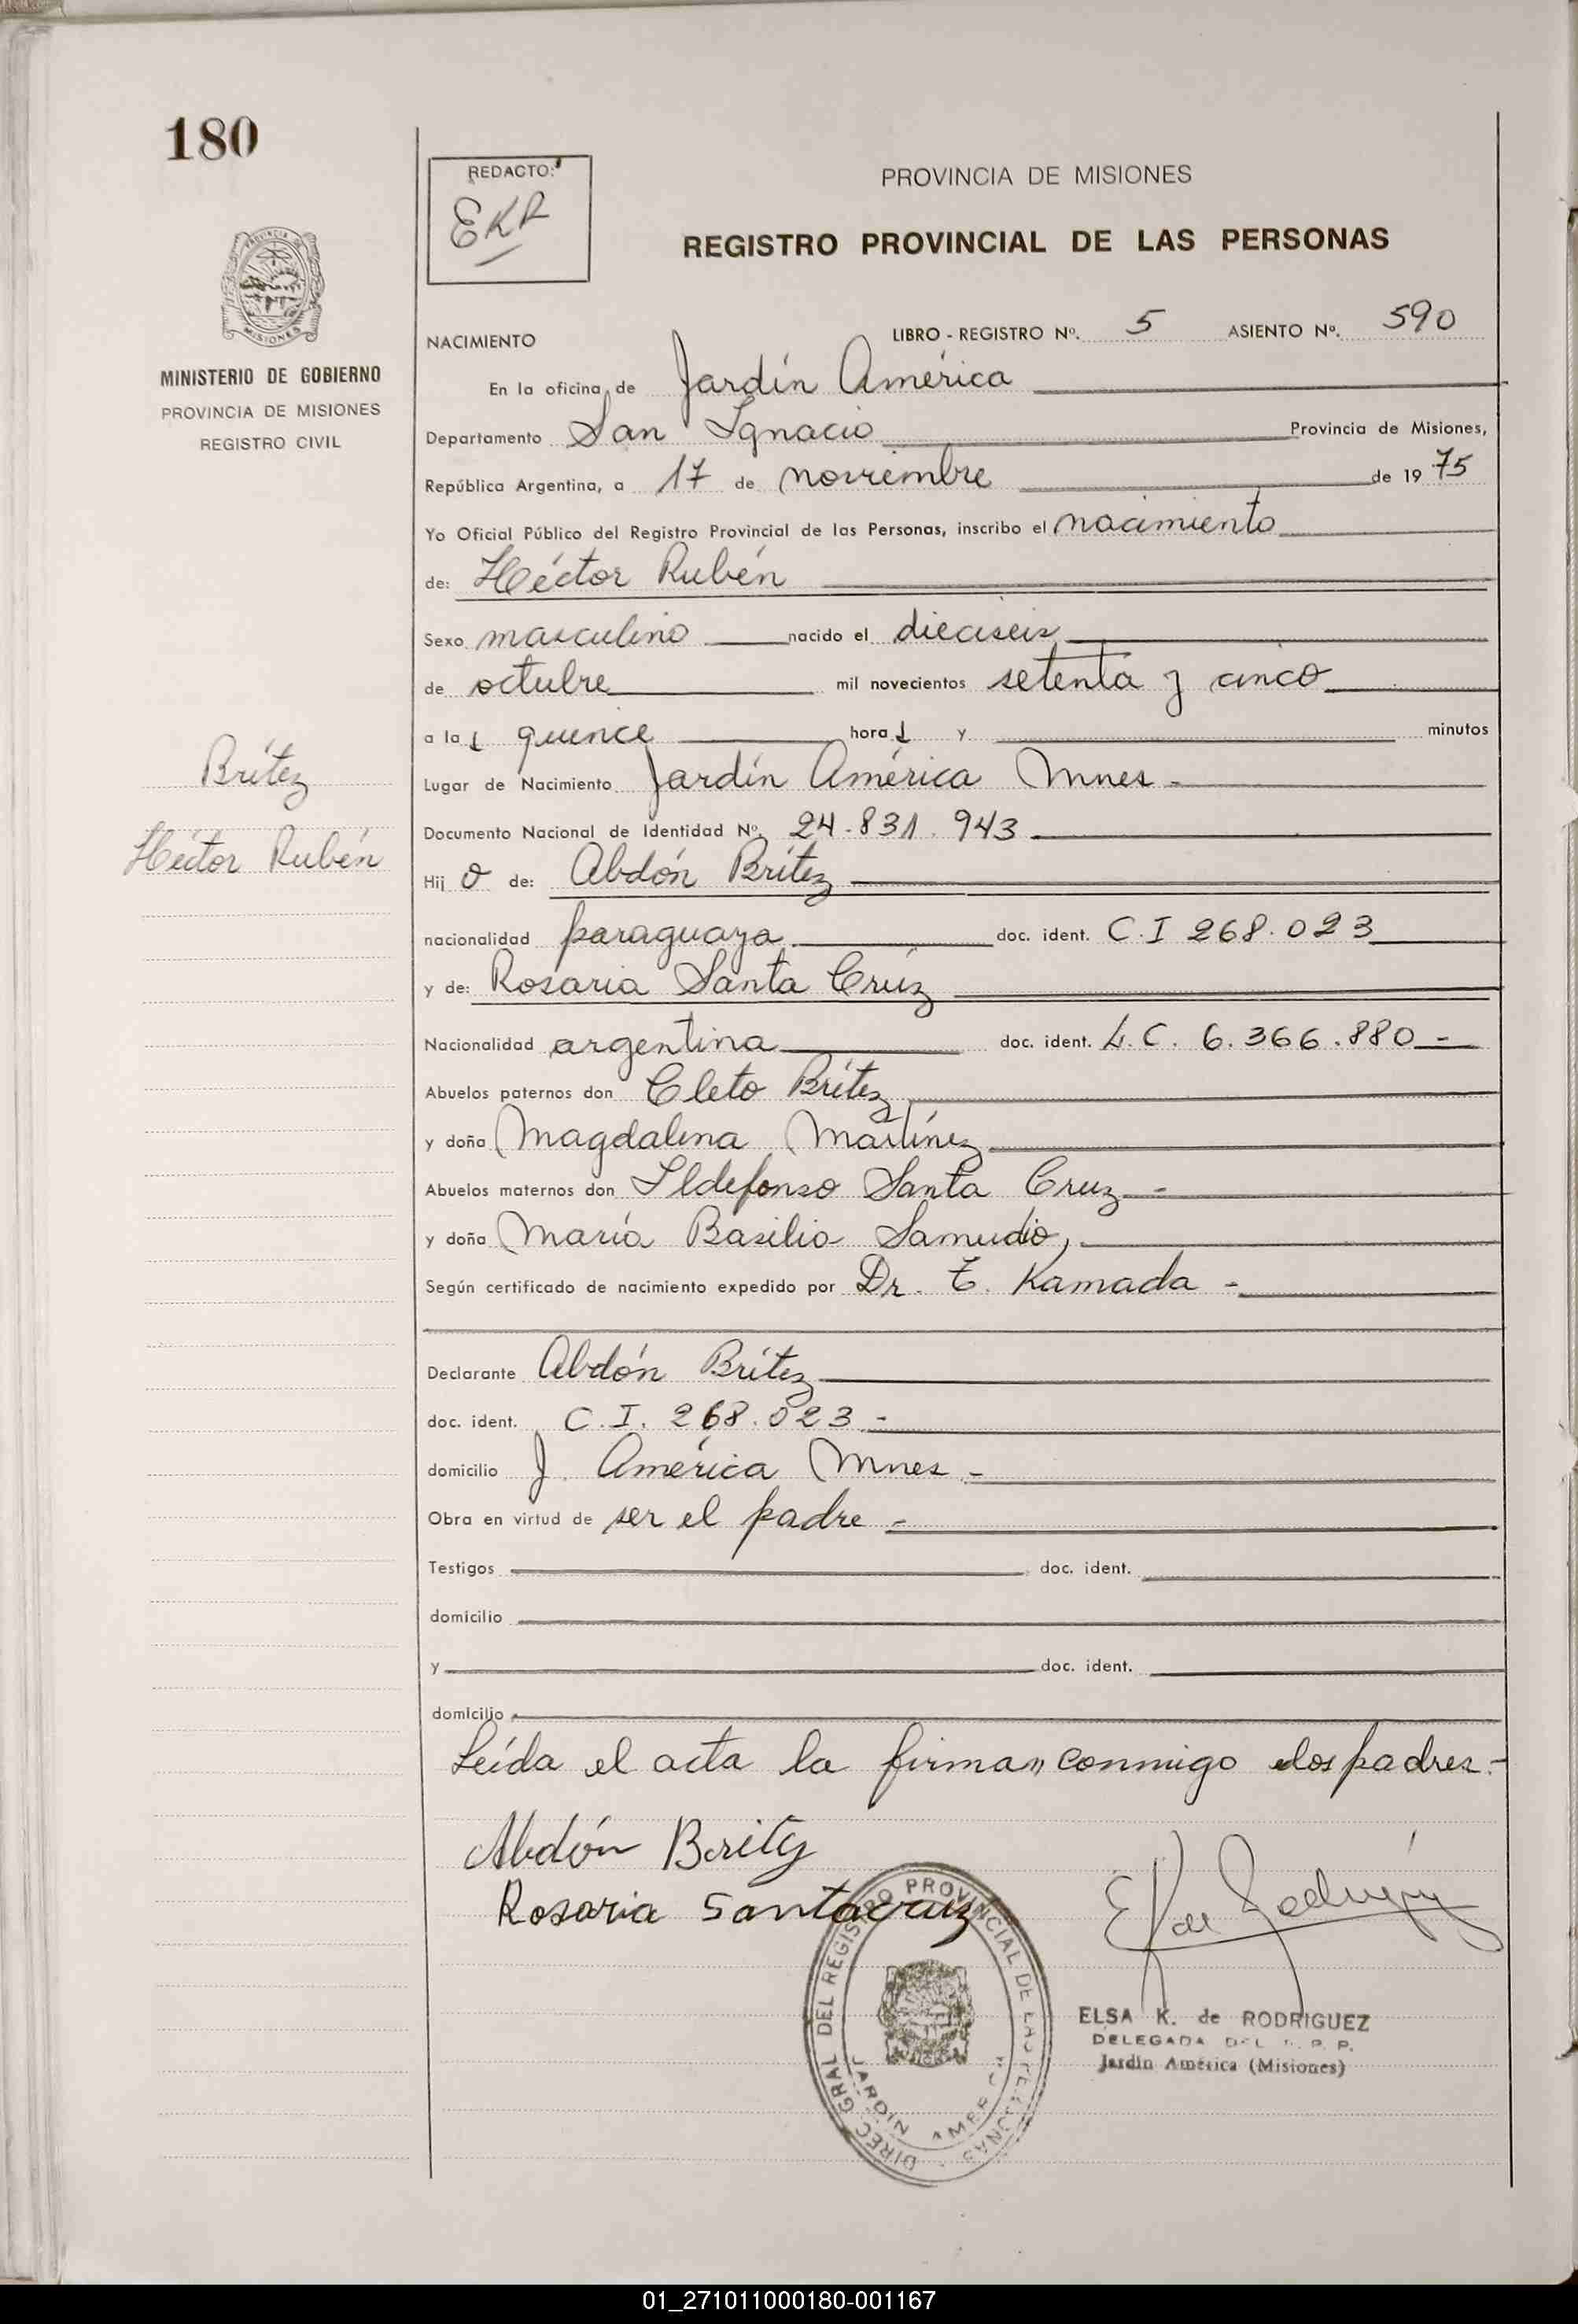 180
REDACTO:
EKR
PROVINCIA DE MISIONES
REGISTRO PROVINCIAL DE LAS PERSONAS
PROVINCIA DE
MISIONES
MINISTERIO DE GOBIERNO
PROVINCIA DE MISIONES
REGISTRO CIVIL
NACIMIENTO LIBRO - REGISTRO Nº. 5 ASIENTO Nº. 590
En la oficina de Jardín América
Departamento San Ignacio Provincia de Misiones,
República Argentina, a 17 de noviembre de 19 75
Yo Oficial Público del Registro Provincial de las Personas, inscribo el nacimiento
de: Héctor Rubén
Sexo masculino nacido el dieciseis
de octubre mil novecientos setenta y cinco
a las quince horas y minutos
Lugar de Nacimiento Jardín América Mnes -
Documento Nacional de Identidad Nº. 24.831.943
Hijo de: Abdón Brítez
nacionalidad paraguaya doc. ident. C.I 268.023
y de: Rosaria Santa Crúz
Nacionalidad argentina doc. ident. L.C. 6.366.880 -
Abuelos paternos don Cleto Brítez
y doña Magdalena Martínez
Abuelos maternos don Ildefonso Santa Cruz -
y doña María Basilia Samudio,
Según certificado de nacimiento expedido por Dr. T. Kamada -
Declarante Abdón Brítez
doc. ident. C.I. 268.023 -
domicilio J. América Mnes -
Obra en virtud de ser el padre -
Testigos doc. ident.
domicilio
y doc. ident.
domicilio
Leída el acta la firman conmigo los padres.-
Brítez
Héctor Rubén
Abdón Britez
Rosaria Santacruz
E K de Rodriguez
DIREC GRAL DEL REGISTRO PROVINCIAL DE LAS PERSONAS
JARDIN AMERICA
ELSA K. de RODRIGUEZ
DELEGADA DEL R. P. P.
Jardín América (Misiones)
01_271011000180-001167